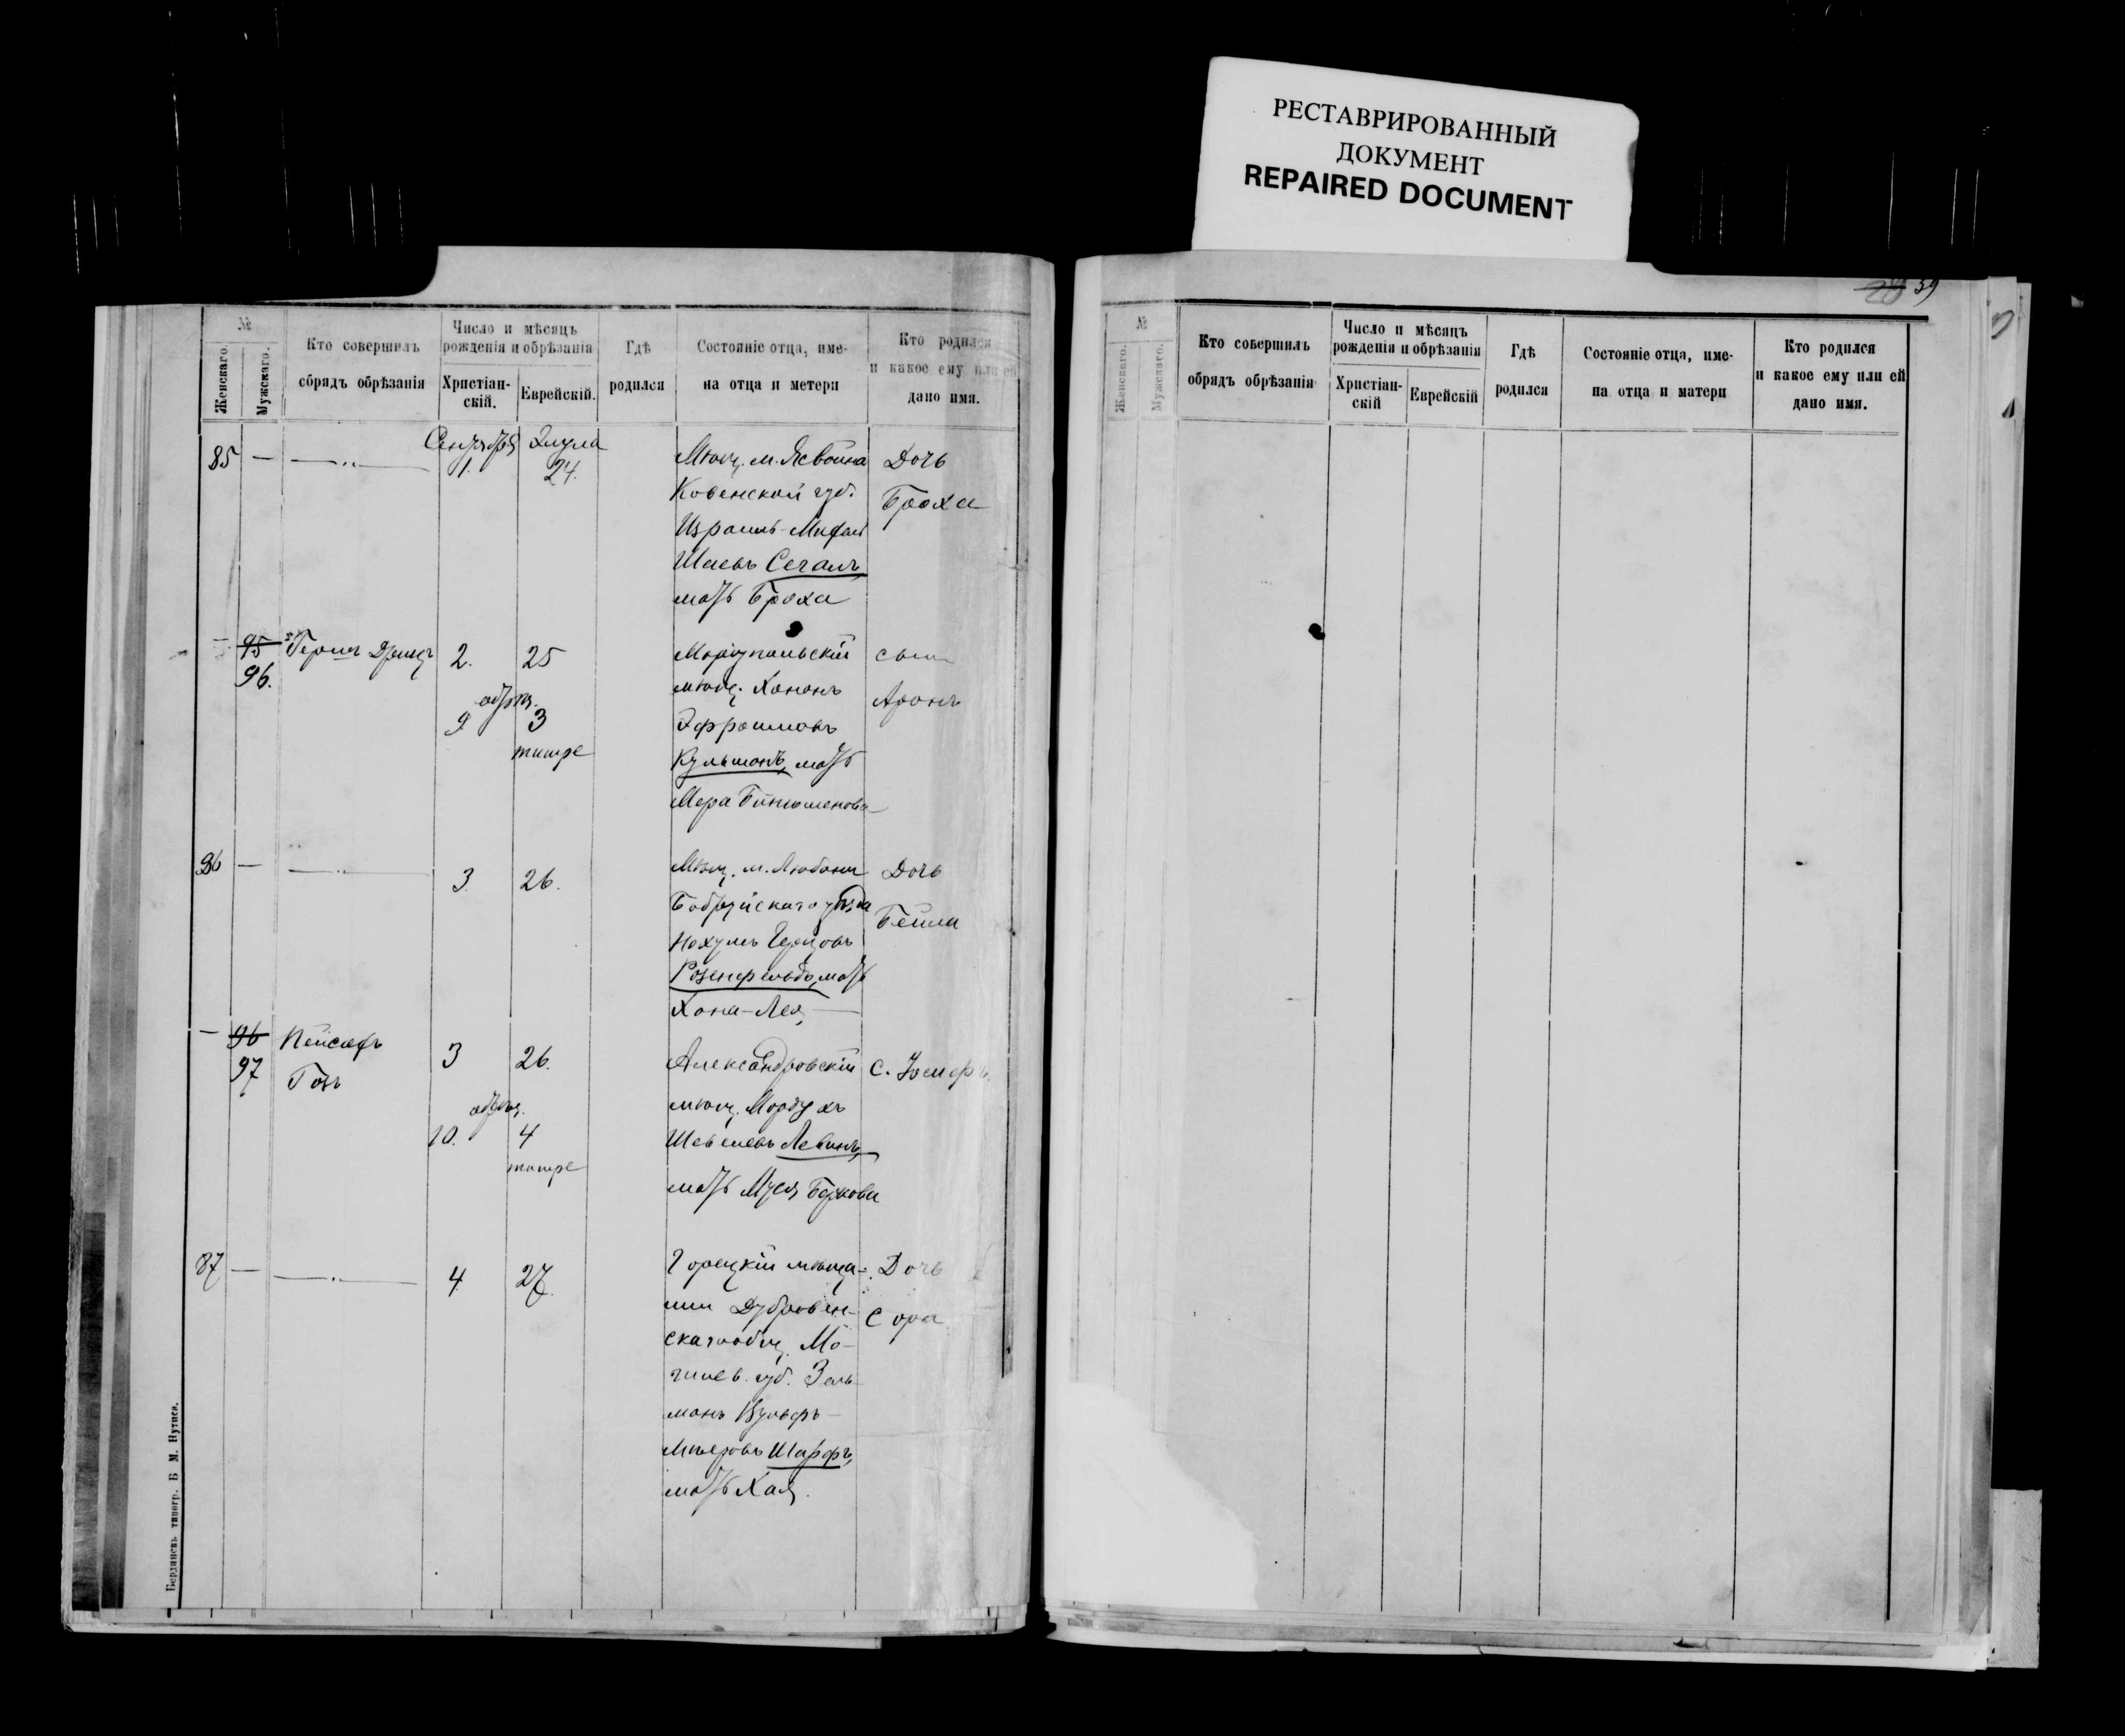 РЕСТАВРИРОВАННЫЙ
ДОКУМЕНТ
REPAIRED DOCUMENT
№
Женскаго.
Мужскаго.
Кто совершилъ
обрядъ обрѣзанія
Число и мѣсяцъ
рожденія и обрѣзанія
Христіан-
скій.
Еврейскій.
Гдѣ
родился
Состояніе отца, име-
на отца и метери
Кто родился
и какое ему или ей
дано имя.
85 —
Сентября Элула
1. 24.
Мѣщ. м.
Ковенской губ.
Израиль-
Шаевъ Сегалъ,
мать Броха
Дочь
Броха
— 95
96.
2. 25
обрѣз.
9 3
тишре
Маріупольскій
мѣщ. Хононъ
Эфроимовъ
мать
Мера
сынъ
Аронъ
86 —
3. 26.
Мѣщ. м. Любони
Бобруйскаго уѣзда
Нохумъ
Розенфельдъ, мать
Хана-Лея
Дочь
Бейла
— 96
97
Пейсахъ
3 26.
обрѣз.
10. 4
тишре
Александровскій
мѣщ. Мордухъ
Левинъ,
мать Муся
с.
87 —
4 27.
Горецкій мѣща-
нин Дубровен-
скаго общ. Мо-
гилев. губ. Зель-
манъ Вульфъ-
Мееровъ Шарфъ,
мать Хая.
Дочь
Сора
Бердянскъ типогр. Б. М. Нутиса.
39
№
Женскаго.
Мужскаго.
Кто совершилъ
обрядъ обрѣзанія
Число и мѣсяцъ
рожденія и обрѣзанія
Христіан-
скій
Еврейскій
Гдѣ
родился
Состояніе отца, име-
на отца и матери
Кто родился
и какое ему или ей
дано имя.